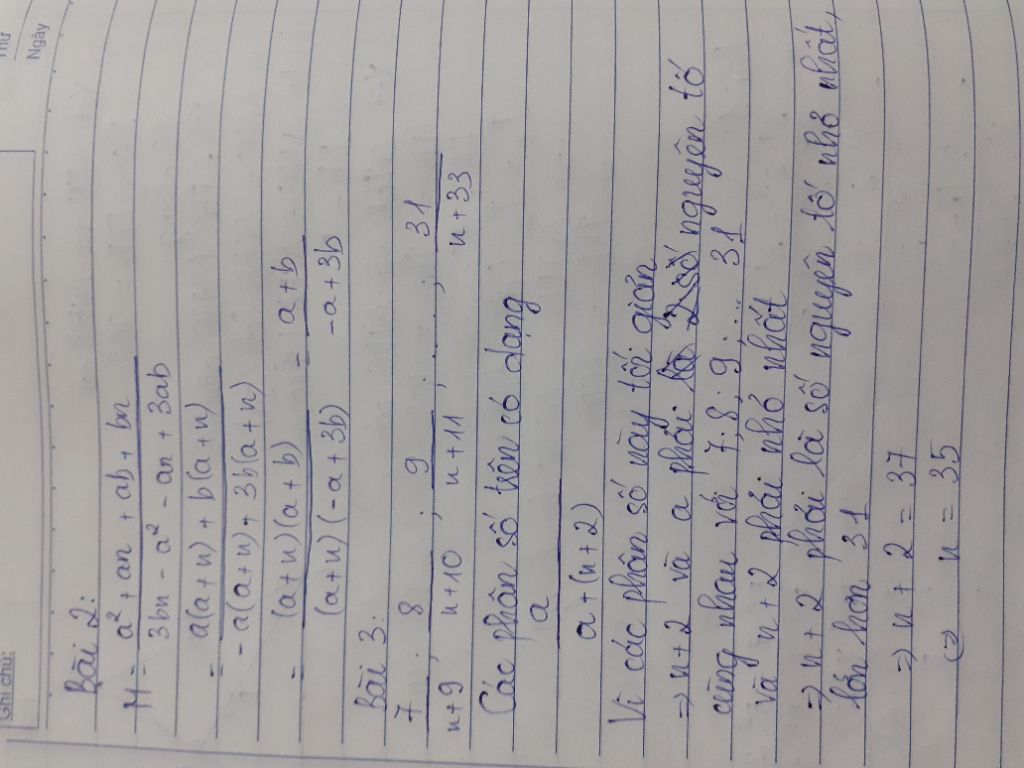 Thứ
Ngày
Ghi chú:
Bài 2:
M = a² + an + ab + bn / 3bn - a² - an + 3ab
= a(a+n) + b(a+n) / -a(a+n) + 3b(a+n)
= (a+n)(a+b) / (a+n)(-a+3b) = a+b / -a+3b
Bài 3:
7/n+9 ; 8/n+10 ; 9/n+11 ; ..... ; 31/n+33
Các phân số trên có dạng
a / a+(n+2)
Vì các phân số này tối giản
=> n+2 và a phải là 2 số nguyên tố
cùng nhau với 7; 8; 9; ... 31
và n+2 phải nhỏ nhất
=> n+2 phải là số nguyên tố nhỏ nhất,
lớn hơn 31
=> n+2 = 37
<=> n = 35